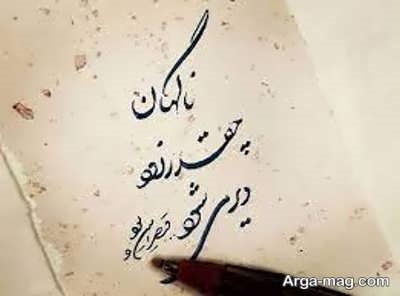 ناگهان
چقدر زود
دیر می شود
قیصر امین پور
Arga-mag.com